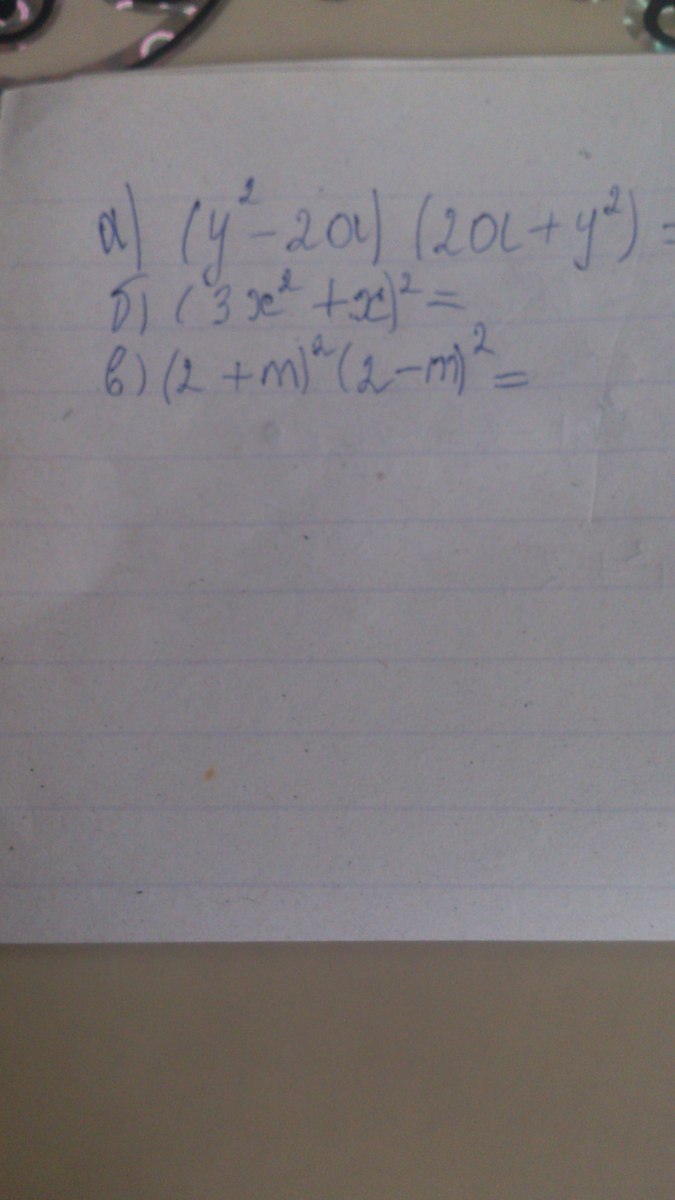 а) (y² - 2a) (2a + y²) =
б) (3x² + x)² =
в) (2 + m)² (2 - m)² =